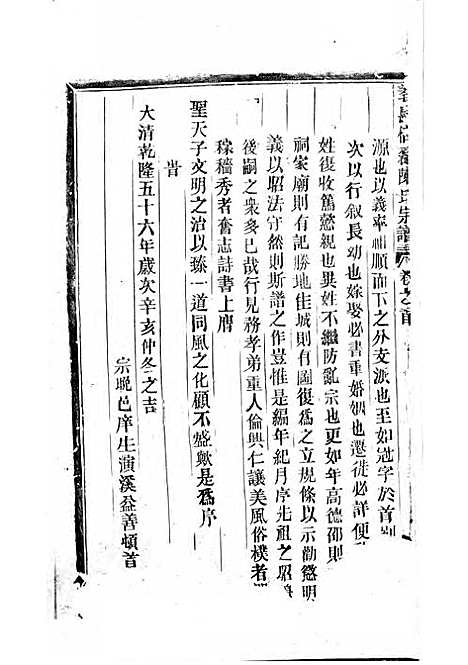 宗譜 卷之首
源也以義率祖順而下之外支派也至如冠字於首別
次以行敘長幼也嫁娶必書重婚姻也遷徙必詳便
姓復收篤懿親也異姓不繼防亂宗也更如年高德邵則
祠家廟則有記勝地佳城則有圖復爲之立規條以示勸懲明
義以昭法守然則斯譜之作豈惟是編年紀月序先祖之昭
後嗣之衆多已哉行見務孝弟重人倫興仁讓美風俗樸者
稼穡秀者奮志詩書上膺
聖天子文明之治以臻一道同風之化顧不盛歟是爲序
旹
大清乾隆五十六年歲次辛亥仲冬之吉
宗晚邑庠生演溪益善頓首